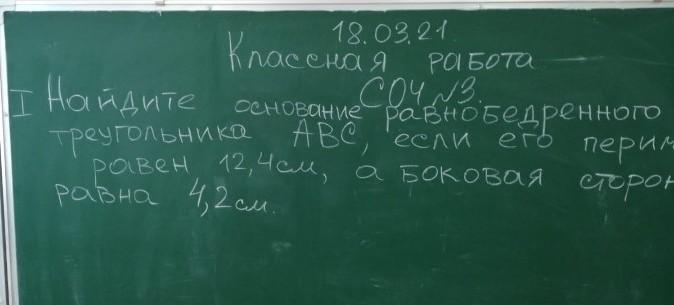 18.03.21.
Классная работа
СОЧ №3.
I Найдите основание равнобедренного
треугольника АВС, если его перим
равен 12,4см, а боковая сторон
равна 4,2см.